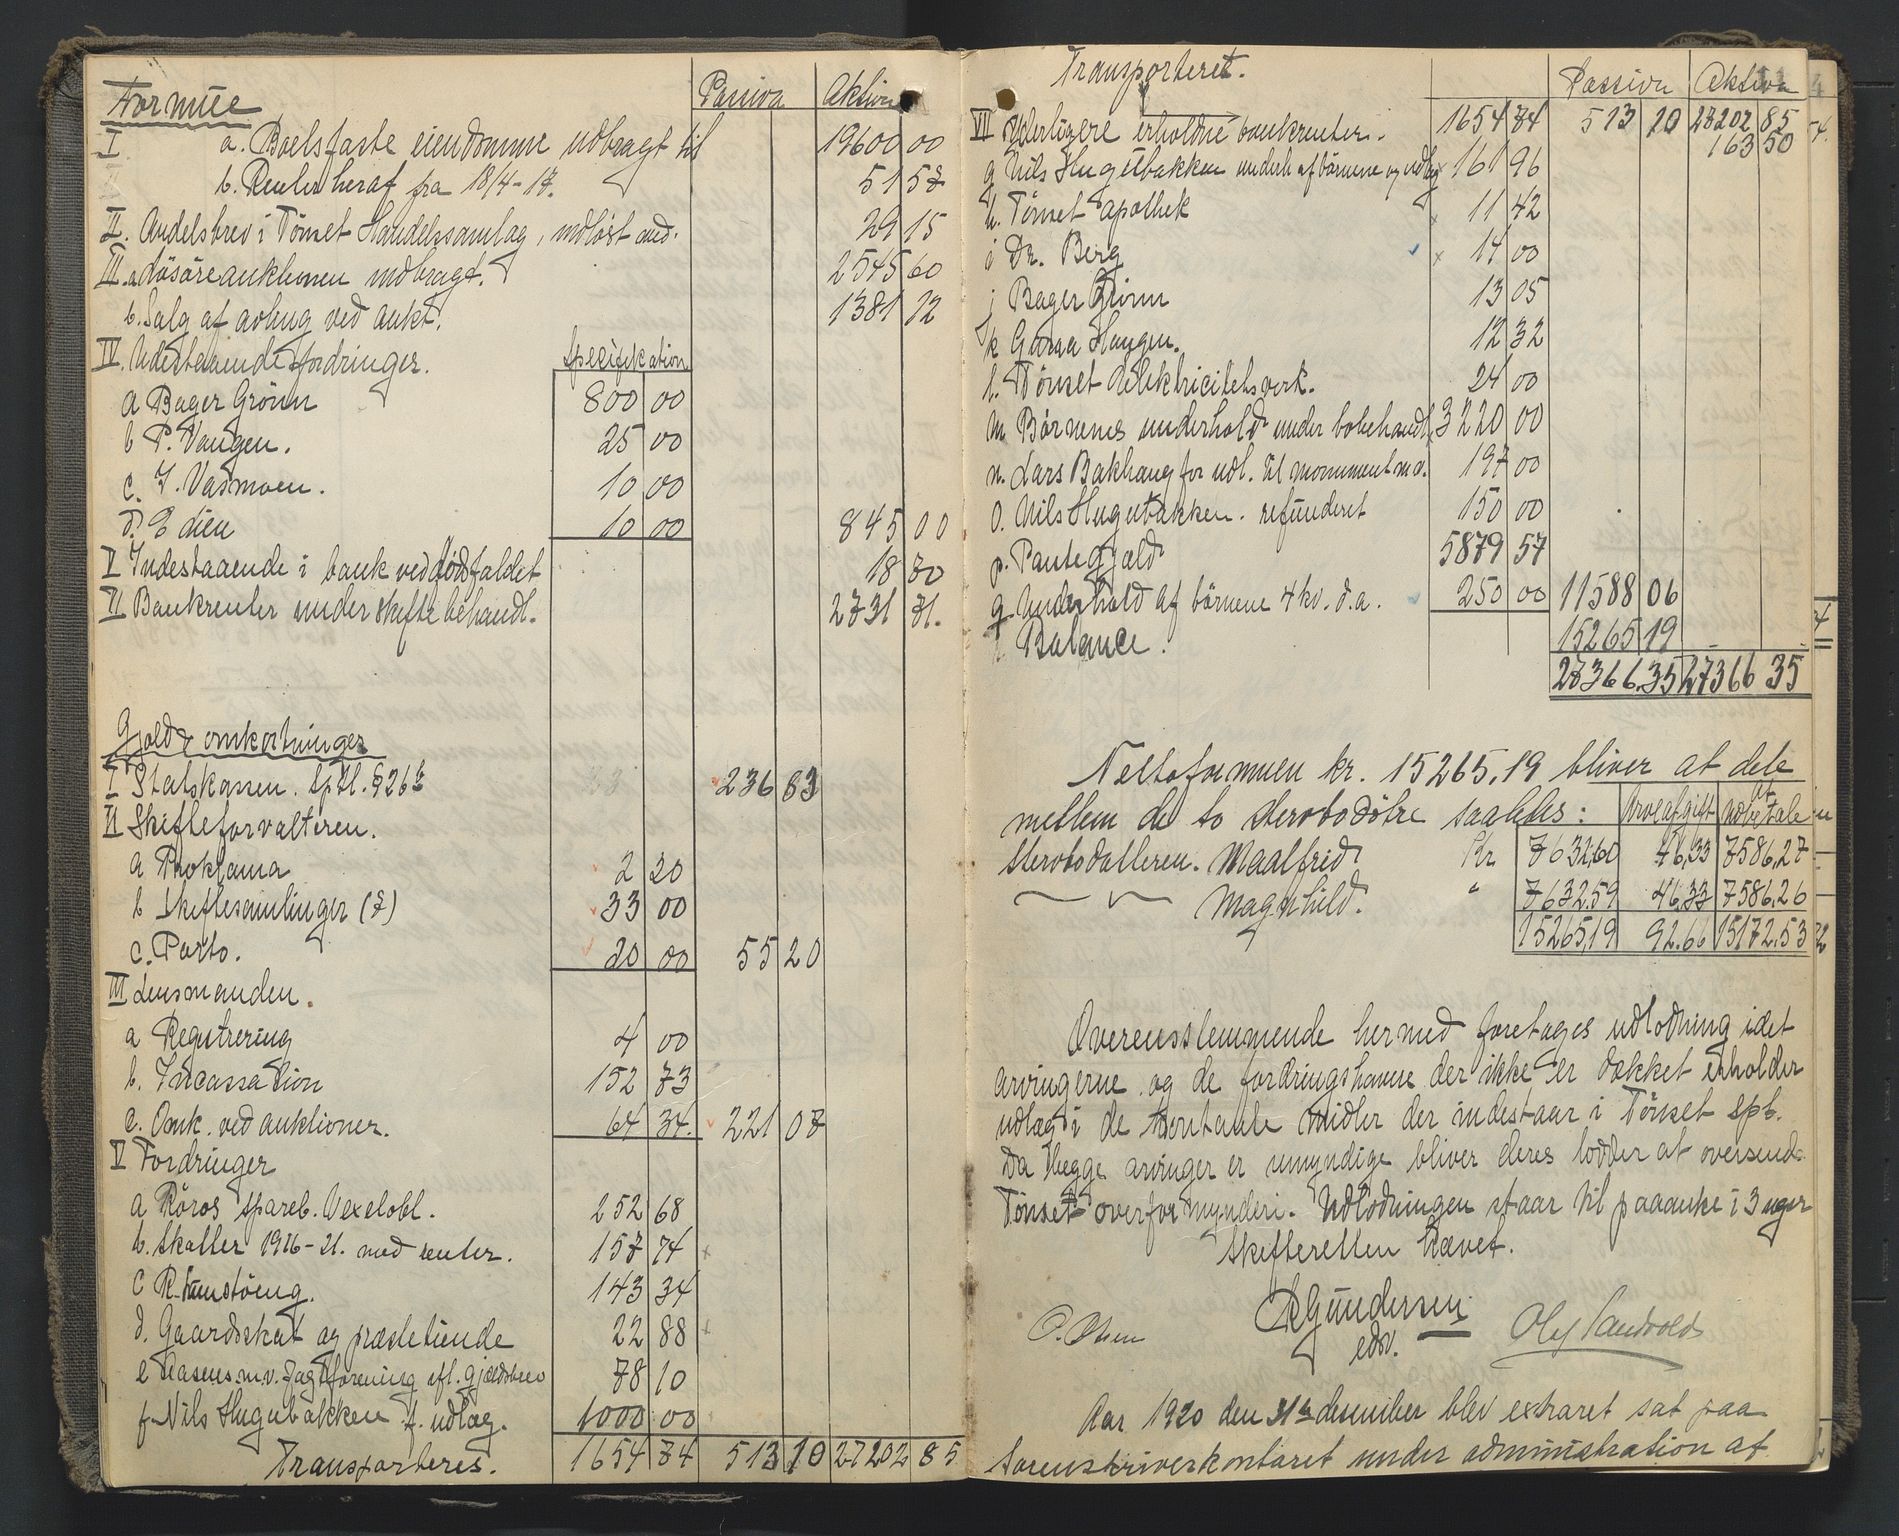 Passiva Aktiva
Formue
I a. Boets faste eiendomme udbragt til 19600 00
b. Renter heraf fra 18/4-17. 51 57
II. Andelsbrev i Tönset Handelssamlag, indløst med. 29 15
III. a Løsöreauktionen indbragt. 2545 60
b. Salg af avling ved aukt. 1381 12
IV. Udestaaende fordringer. Specifikation
a Bager Grönn 800 00
b P. Vangen. 25 00
c. I. Vasmoen. 10 00
d. E dien 10 00 845 00
V Indestaaende i bank ved dödsfaldet 18 70
VI Bankrenter under skiftebehandl. 2731 71.
Gjæld & omkostninger
I Statskassen. Sptl. § 26 b 236 83
II Skifteforvalteren.
a Proklama 2 20
b Skiftesamlinger (7) 33 00
c. Porto. 20 00 55 20
III Lensmanden.
a Registrering 4 00
b. Incassation 152 73
c. Omk. ved auktioner. 64 34. 221 07
V Fordringer
a Röros spareb. Vexelobl. 252 68
b. Skatter 1916-21. med renter. 157 74
c R. Ramstöeng. 143 34
d. Gaardsskat og præstetiende 22 88
e Aasens m.v. Jagtforening efl. gjældsbrev 78 10
f. Nils Hugubakken f. udlæg. 1000 00
Transporteres. 1654 74 513 10 27202 85
Transporteret.
Passiva Aktiva
1654 74 513 10 27202 85
VII Yderligere erholdne bankrenter. 163 50
g Nils Hugubakken underh af börnene og udlæg 161 96
h. Tönset apothek 11 42
i Dr. Berg 14 00
j Bager Grönn 13 05
k Gurua Haugen. 12 32
l. Tönset elektricitetsverk. 24 00
m Börnenes underhold under bobehandl. 3220 00
n. Lars Bakhaug for udl. til monument m.v. 197 00
o. Nils Hugubakken. refunderet 150 00
p. Pantegjæld 5879 57
q Underhold af börnene 4 kv. d.a. 250 00 11588 06
r Balance. 15265 19
27366.35 27366 35
Nettoformuen kr. 15265,19 bliver at dele
mellem de to stervbodötre saaledes: Arveafgift at udbetale
Stervbodatteren. Maalfrid Kr 7632,60 46,33 7586,27
— " — Magnhild. " 7632.59 46,33 7586,26
15265,19 92.66 15172.53
Overensstemmende hermed foretages udlodning idet
arvingerne og de fordringshavere der ikke er dækket erholder
udlæg i de kontante midler der indestaar i Tönset spb.
Da begge arvinger er umyndige bliver deres lodder at oversende
Tönset overformynderi. Udlodningen staar til paaanke i 3 uger
Skifteretten hævet.
R Gundersen
edsv.
O. Olsen Olaf Sandvold
Aar 1920 den 31te desember blev extraret sat paa
Sorenskriverkontoret under administration af